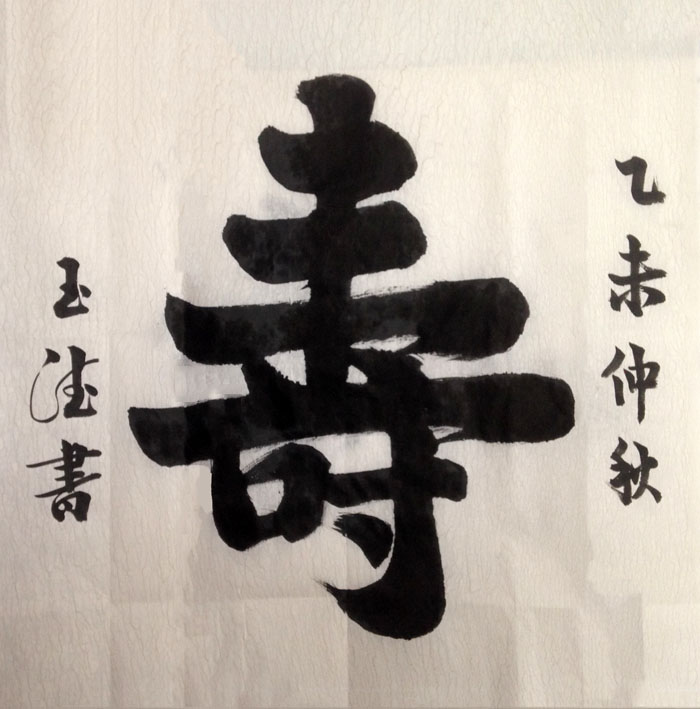 乙未仲秋
壽
玉德書